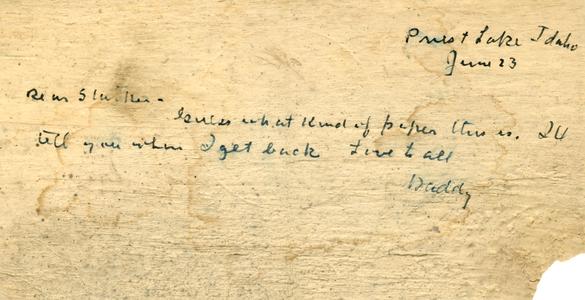 Priest Lake Idaho
June 23
Dear
Guess what kind of paper this is. Ill
tell you when I get back Love to all
Daddy